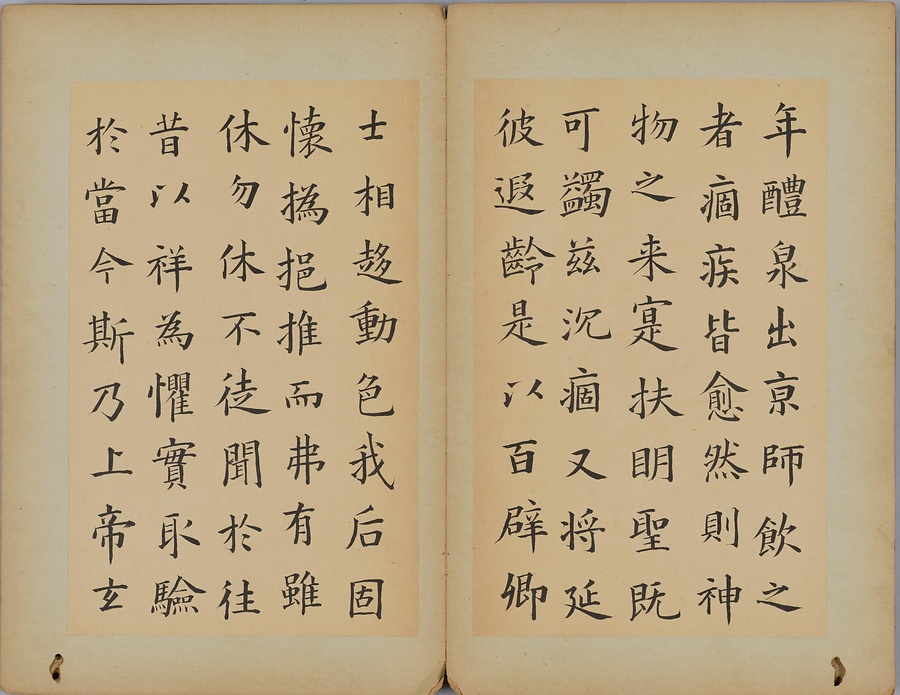 年醴泉出亰師飲之
者痼疾皆愈然則神
物之来寔扶眀聖既
可蠲兹沉痼又将延
彼遐齡是以百辟卿
士相趍動色我后固
懷撝挹推而弗有雖
休勿休不徒聞於往
昔以祥為懼實取驗
於當今斯乃上帝玄